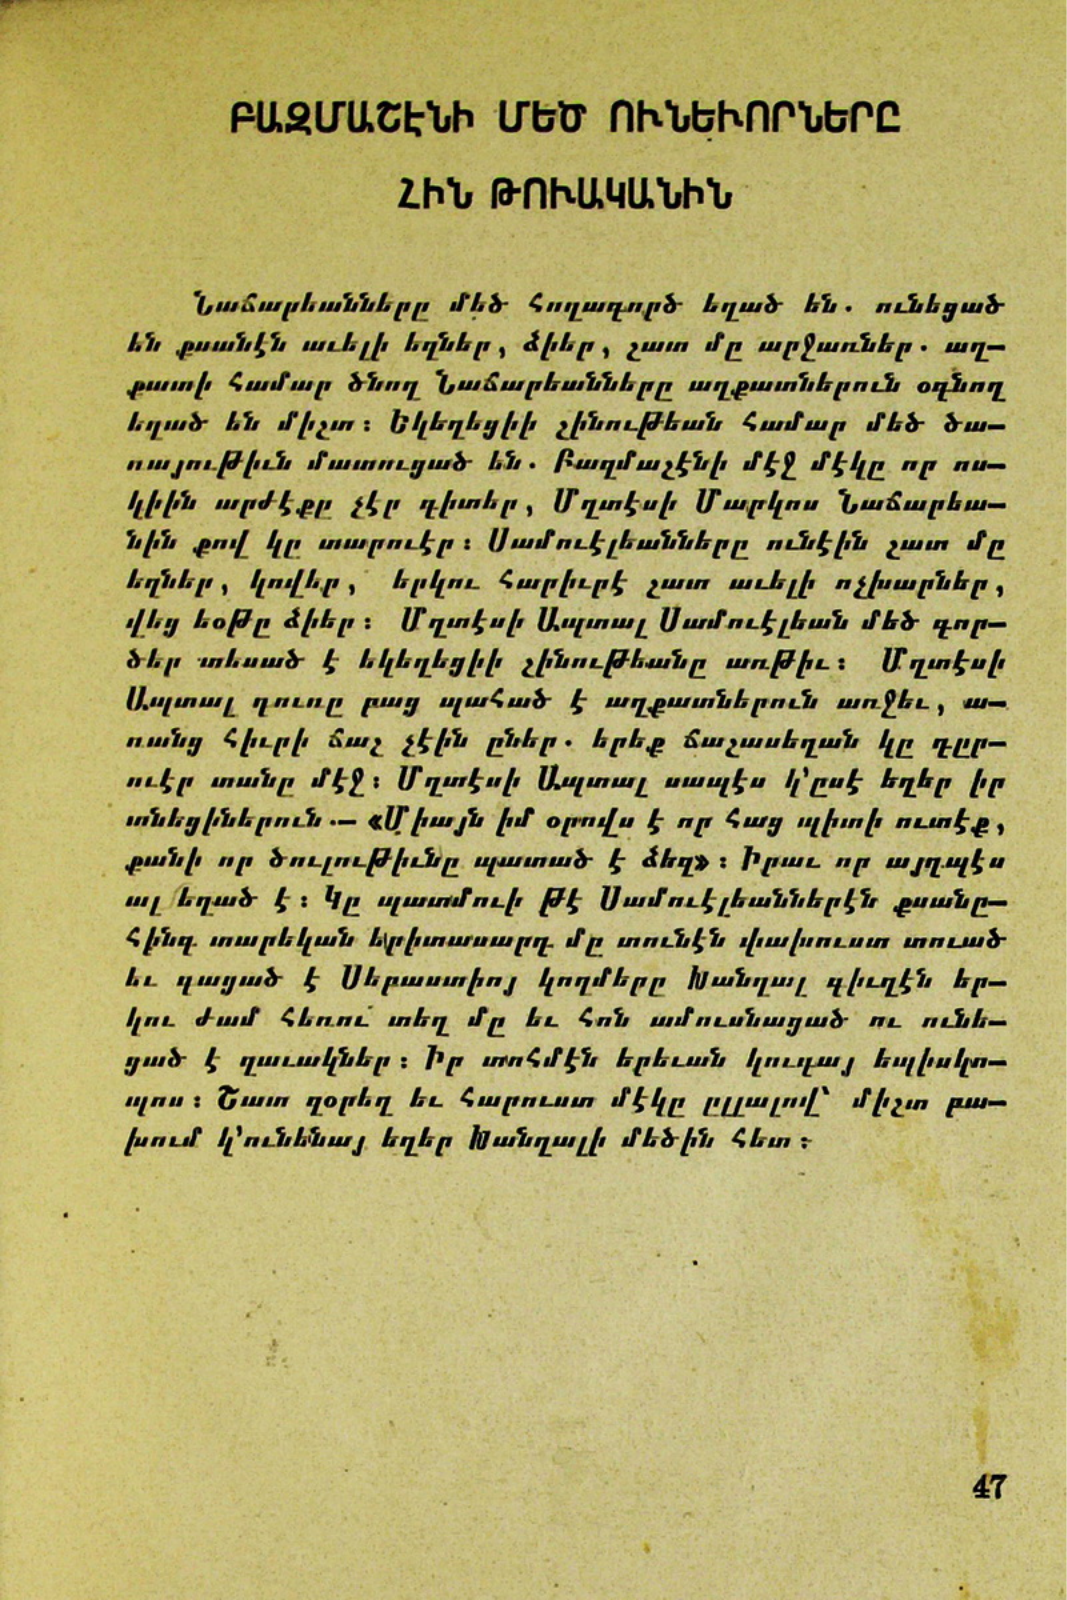 ԲԱԶՄԱՇԷՆԻ ՄԵԾ ՈՒՆԵՒՈՐՆԵՐԸ
ՀԻՆ ԹՈՒԱԿԱՆԻՆ
Նաճարեանները մեծ հողագործ եղած են. ունեցած
են քսանէն աւելի եղներ, ձիեր, շատ մը արջառներ. աղ-
քատի համար ծնող Նաճարեանները աղքատներուն օգնող
եղած են միշտ։ Եկեղեցիի շինութեան համար մեծ ծա-
ռայութիւն մատուցած են. Բազմաշէնի մէջ մէկը որ ոս-
կիին արժէքը չէր գիտեր, Մղտէսի Մարկոս Նաճարեա-
նին քով կը տարուէր։ Սամուէլեանները ունէին շատ մը
եղներ, կովեր, երկու հարիւրէ շատ աւելի ոչխարներ,
վեց եօթը ձիեր։ Մղտէսի Ապտալ Սամուէլեան մեծ գոր-
ծեր տեսած է եկեղեցիի շինութեանը առթիւ։ Մղտէսի
Ապտալ դուռը բաց պահած է աղքատներուն առջեւ, ա-
ռանց հիւրի ճաշ չէին ըներ. երեք ճաշասեղան կը դըր-
ուէր տանը մէջ։ Մղտէսի Ապտալ սապէս կ՚ըսէ եղեր իր
տնեցիներուն.— «Միայն իմ օրովս է որ հաց պիտի ուտէք,
քանի որ ծուլութիւնը պատած է ձեզ»։ Իրաւ որ այդպէս
ալ եղած է։ Կը պատմուի թէ Սամուէլեաններէն քսանը-
հինգ տարեկան երիտասարդ մը տունէն փախուստ տուած
եւ գացած է Սեբաստիոյ կողմերը Խանդալ գիւղէն եր-
կու ժամ հեռու տեղ մը եւ հոն ամուսնացած ու ունե-
ցած է զաւակներ։ Իր տոհմէն երեւան կուգայ եպիսկո-
պոս։ Շատ զօրեղ եւ հարուստ մէկը ըլլալով՝ միշտ բա-
խում կ՚ունենայ եղեր Խանդալի մեծին հետ։
47